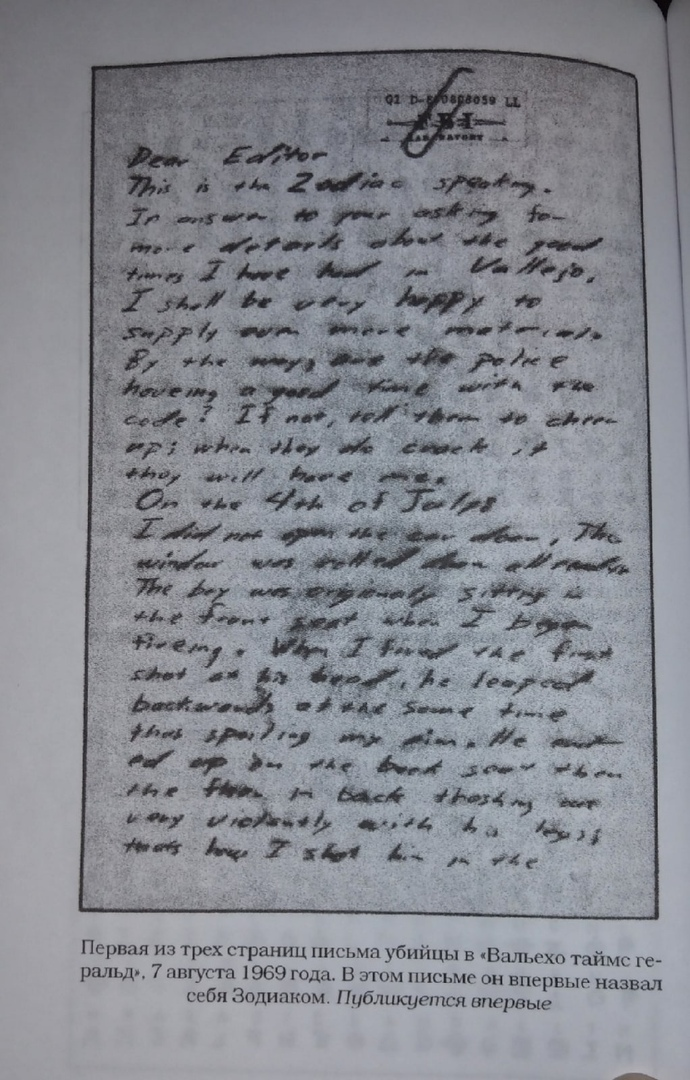 FBI
LABORATORY
Dear Editor
This is the Zodiac speaking.
In answer to your asking for
more details about the good
times I have had in Vallejo,
I shall be very happy to
supply even more material.
By the way, are the police
haveing a good time with the
code? If not, tell them to cheer
up; when they do crack it
they will have me.
On the 4th of July
I did not open the car door, The
window was rolled down all ready
The boy was origionaly sitting in
the front seat when I began
fireing. When I fired the first
shot at his head, he leaped
backwards at the same time
thus spoiling my aim. He end
ed up on the back seat then
the floor in back thashing out
very violently with his legs;
thats how I shot him in the
Первая из трех страниц письма убийцы в «Вальехо таймс ге-
ральд», 7 августа 1969 года. В этом письме он впервые назвал
себя Зодиаком. Публикуется впервые